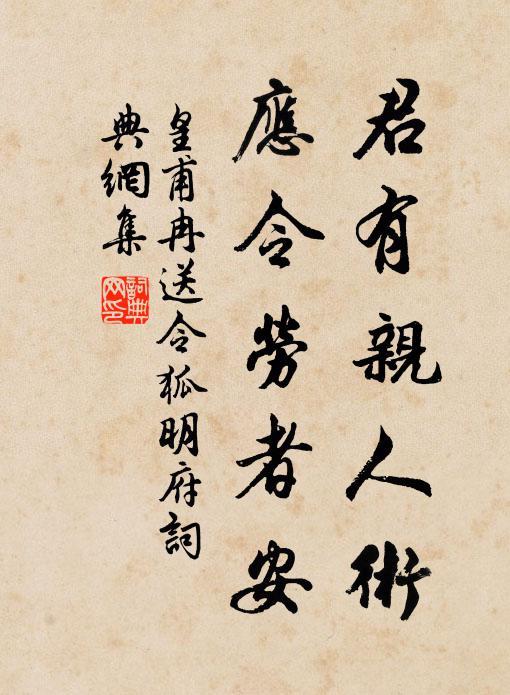 君有親人術
應令勞者安
皇甫冉送令狐明府詞
典網集
詞典
网印